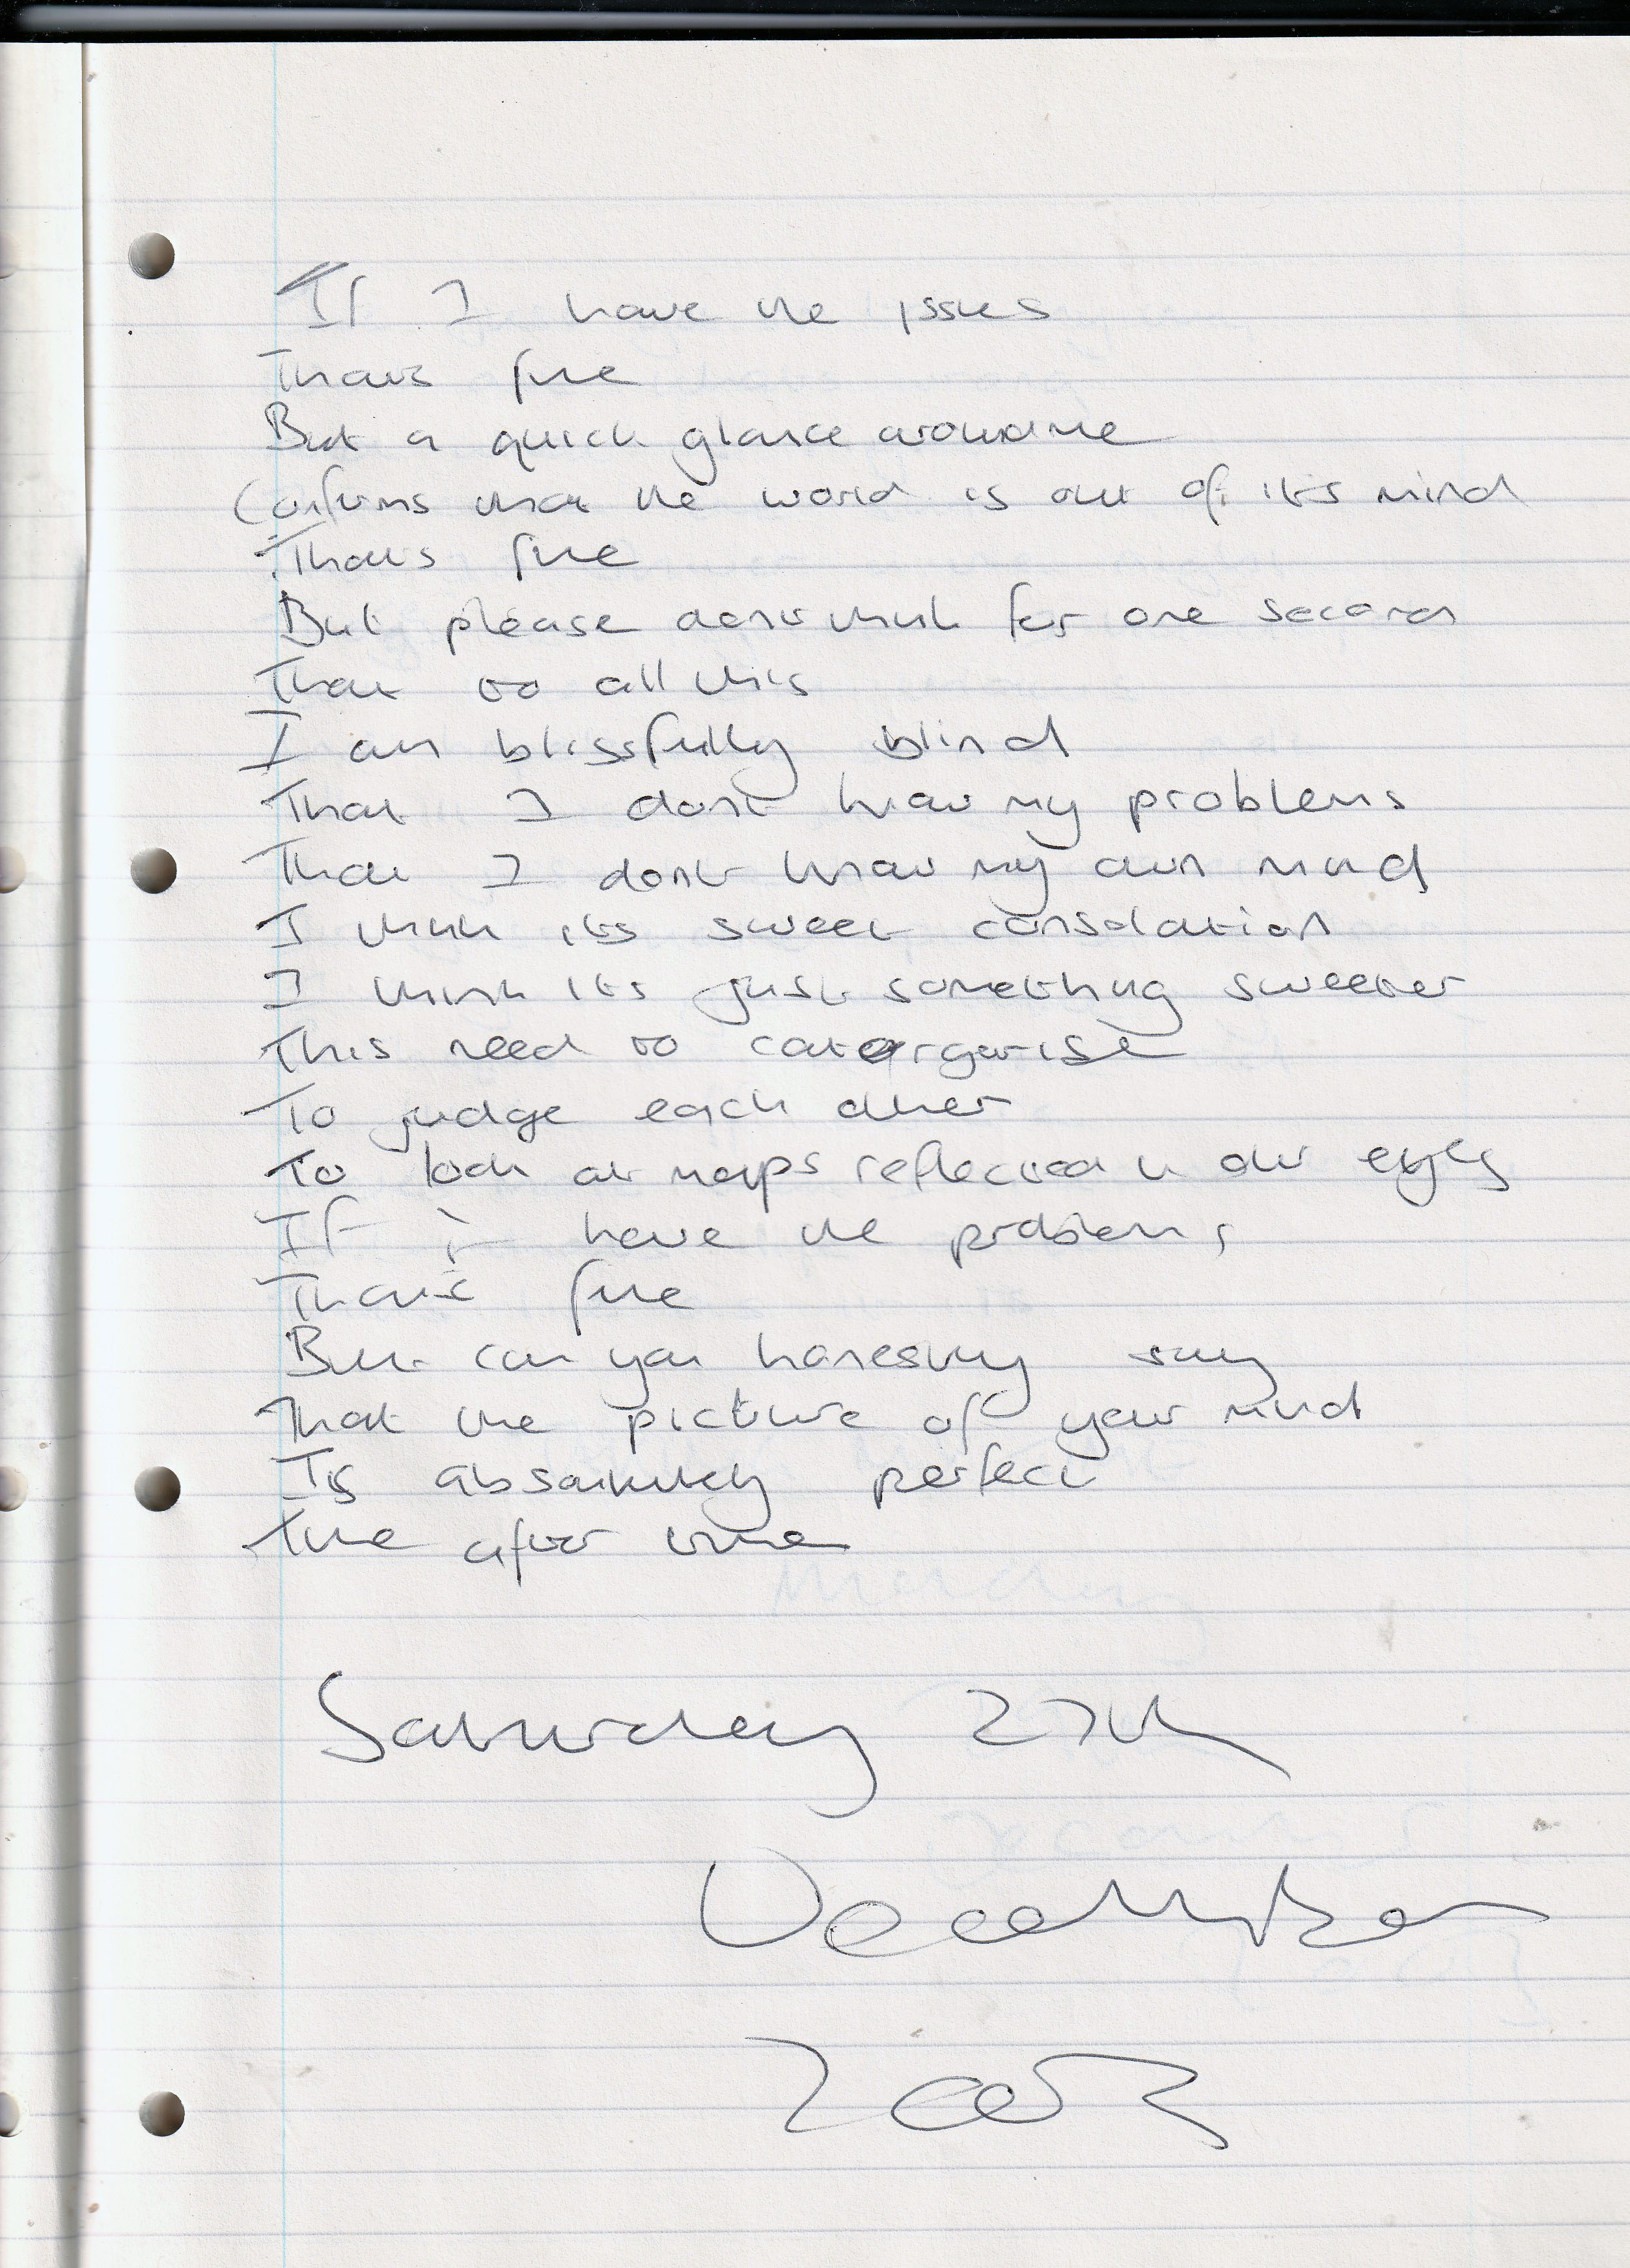 If I have the issues
Thats fine
But a quick glance around me
Confirms that the world is out of it's mind
Thats fine
But please dont think for one second
That to all this
I am blissfully blind
That I dont know my problems
That I dont know my own mind
I think its sweet consolation
I think its just something sweeter
This need to catorgorise
To judge each other
To look at maps reflected in our eyes
If I have the problems
Thats fine
But can you honestly say
That the picture of your mind
Is absolutely perfect
Time after time
Saturday 27th
December
2003